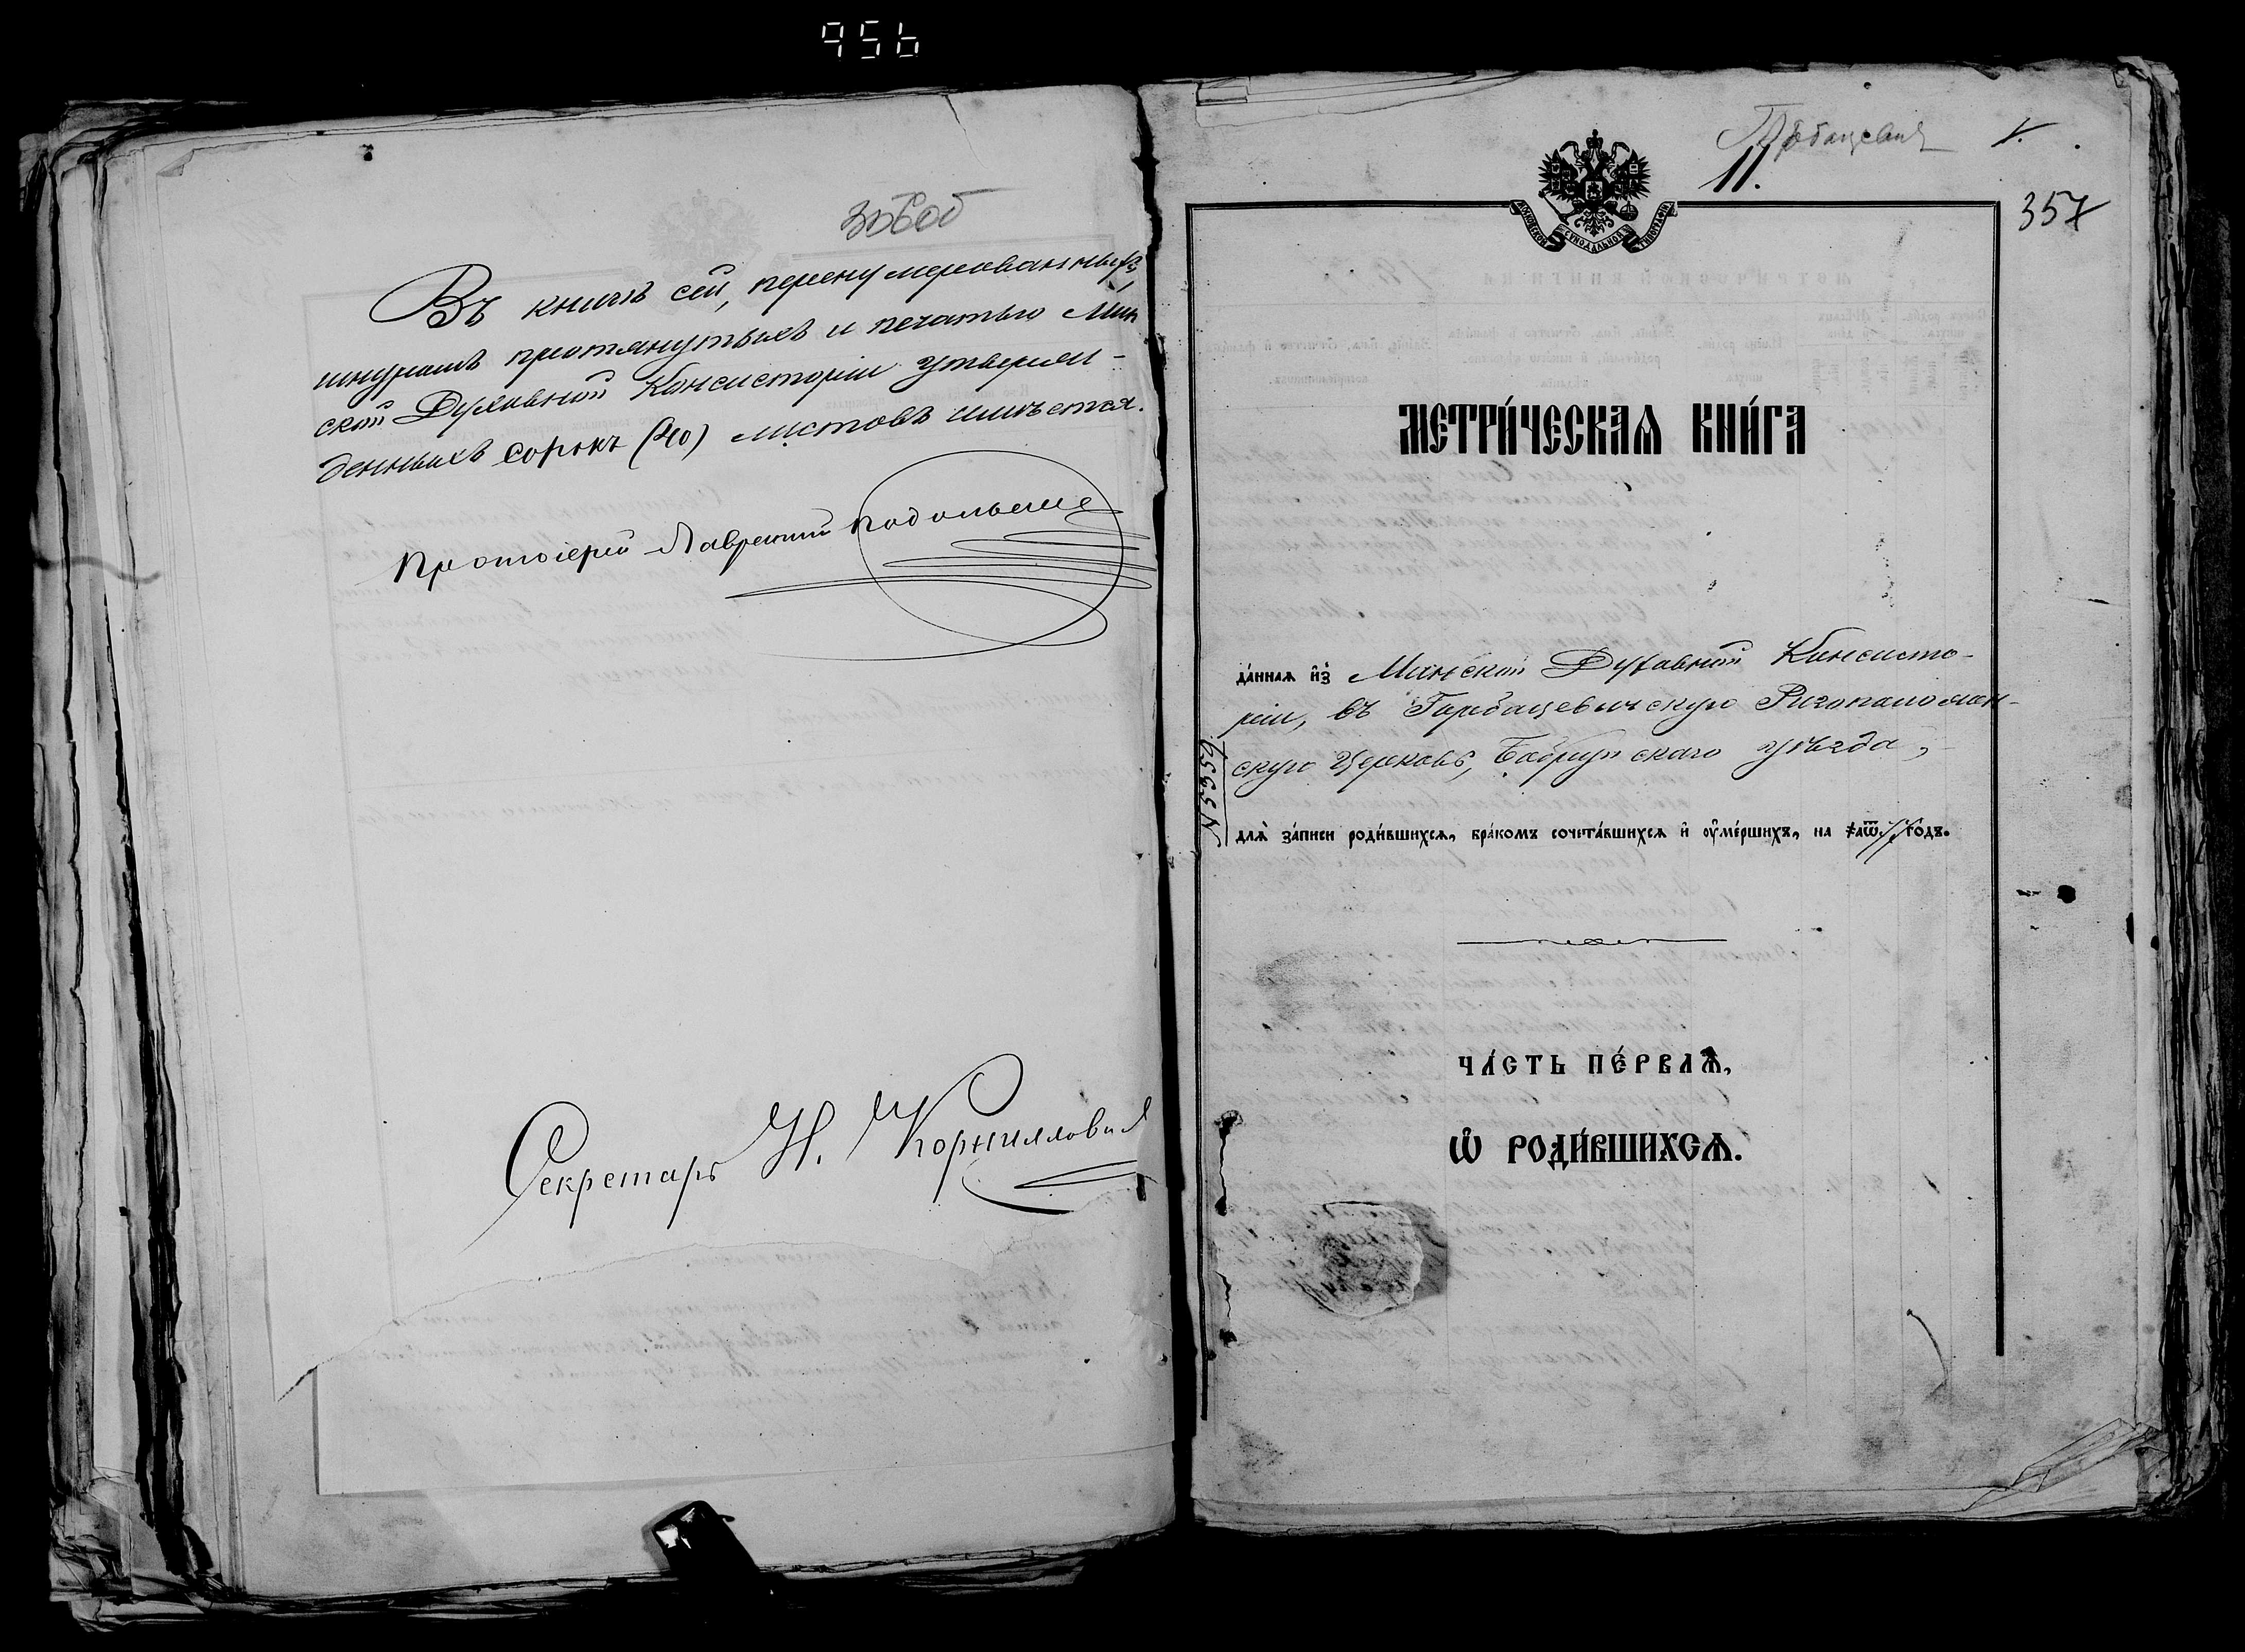 956
356об
Въ книгѣ сей, перенумерованныхъ,
шнуромъ протянутыхъ и печатью Мин
ской Духовной Консисторіи утверж-
денныхъ сорокъ (40) листовъ имѣется.
Протоіерей Лаврентій Подольскі
Секретарь Н. Корнилович
Горбацевичи
11.
357
МОСКОВСКОЙ СѴНОДАЛЬНОЙ ТИПОГРАФІИ
МЕТРИ́ЧЕСКАѦ КНИ́ГА
да́ннаѧ и҆з̾ Минской Духовной Консисто-
ріи, въ Горбацевичскую Ризоположен-
скую Церковь, Бобруйскаго уѣзда,
№ 5359
длѧ̀ за́писи роди́вшихсѧ, бра́комъ сочета́вшихсѧ и҆ оу҆ме́ршихъ, на ҂аѿ годъ.
ЧА́СТЬ ПЕ́РВАѦ,
Ѽ РОДИ́ВШИХСѦ.